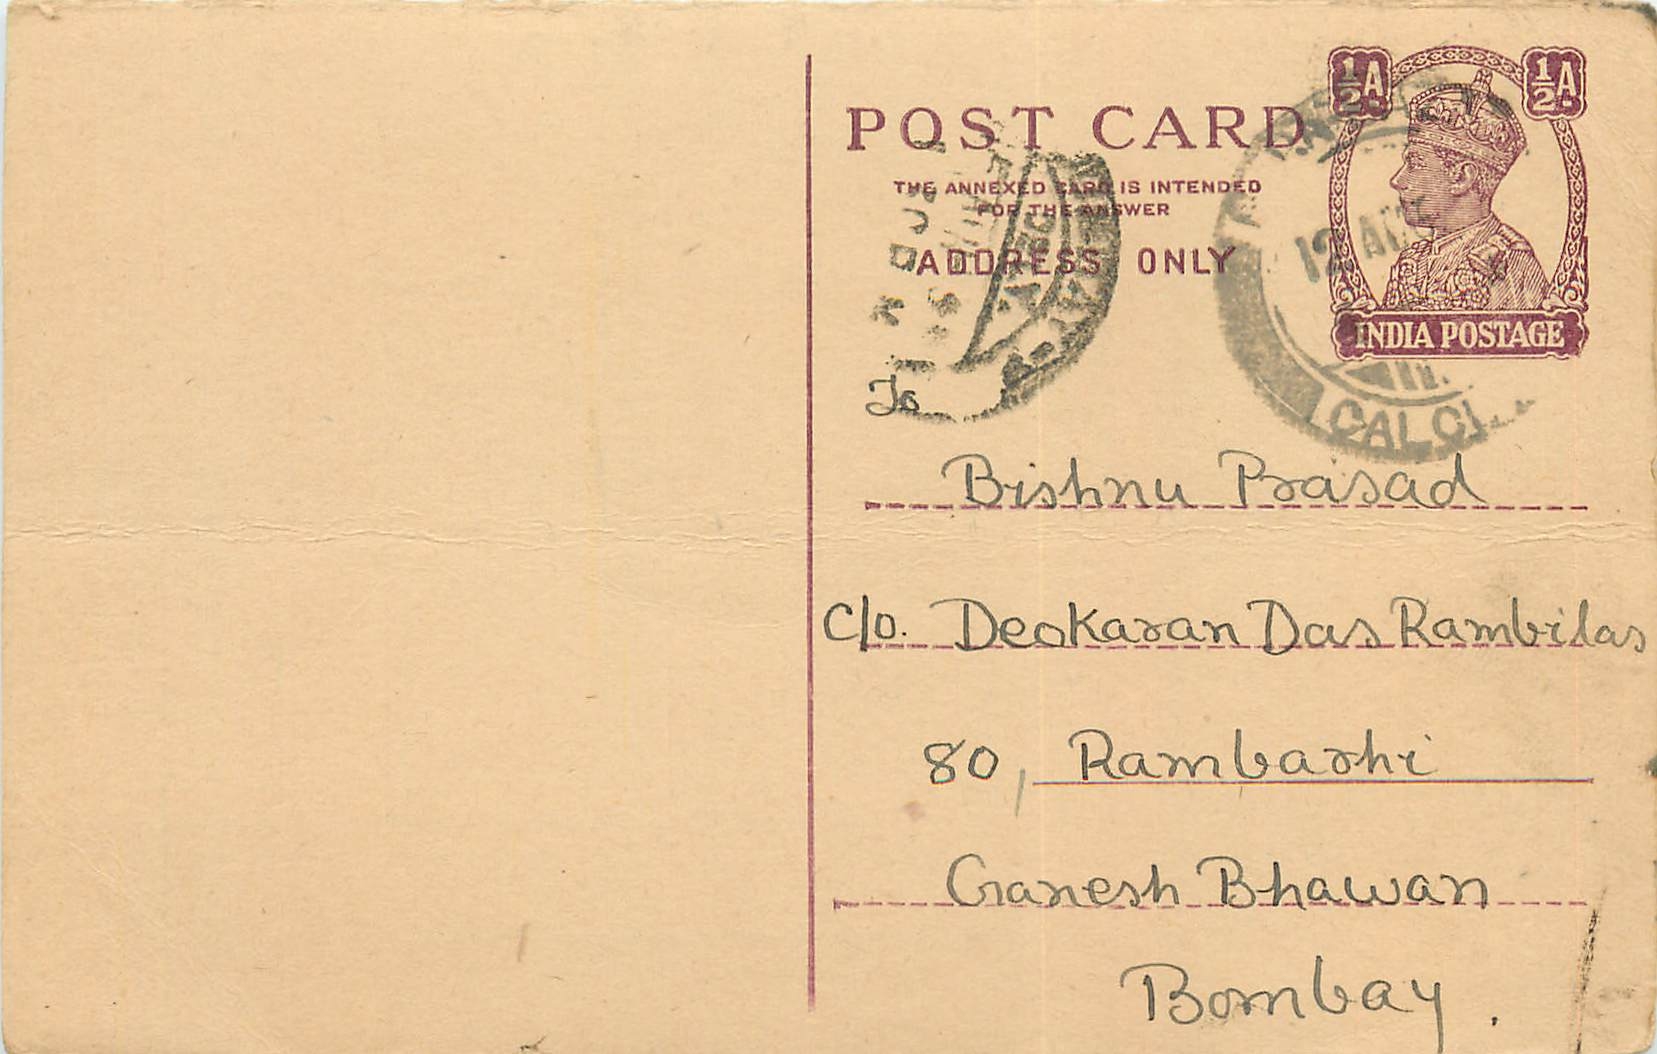 ½A ½A
POST CARD
THE ANNEXED CARD IS INTENDED
FOR THE ANSWER
ADDRESS ONLY
12 AUG
INDIA POSTAGE
To
Bishnu Prasad
C/o. Deokaran Das Rambilas
80, Rambashi
Ganesh Bhawan
Bombay.